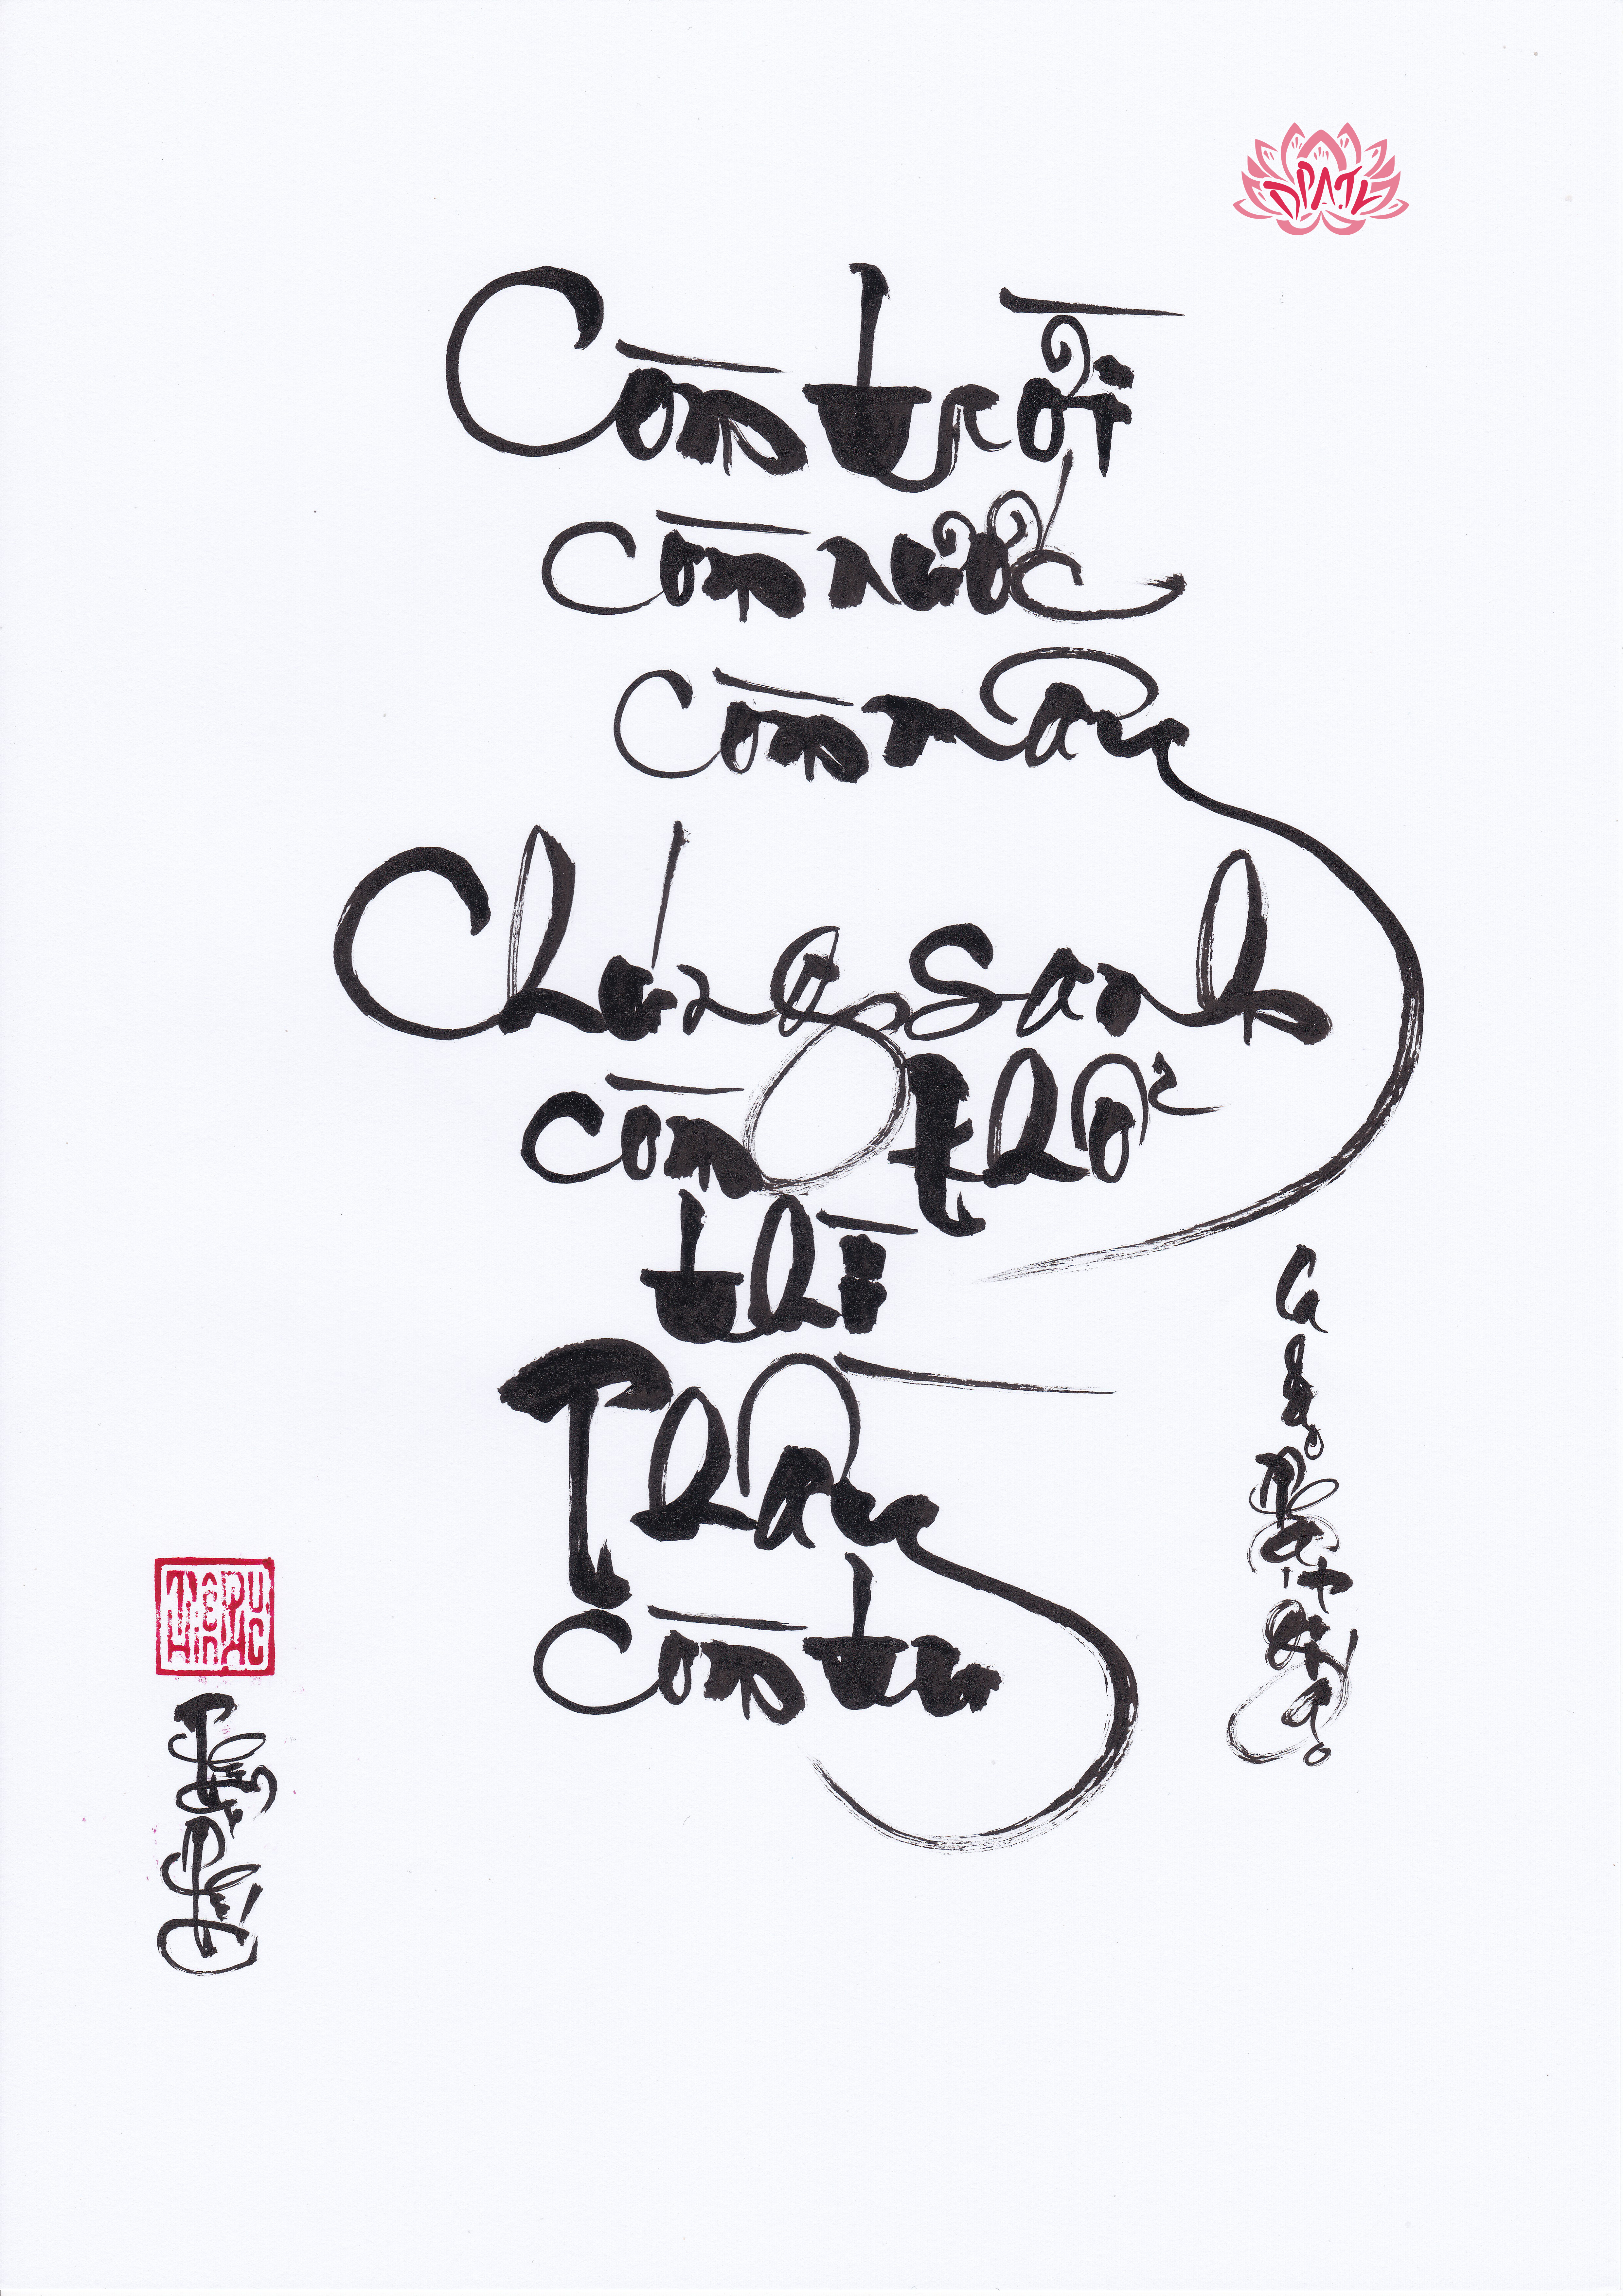 ĐPATL
Còn trời
còn nước
còn mây
Chúng sanh
còn khổ
thì
Thầy
còn tu